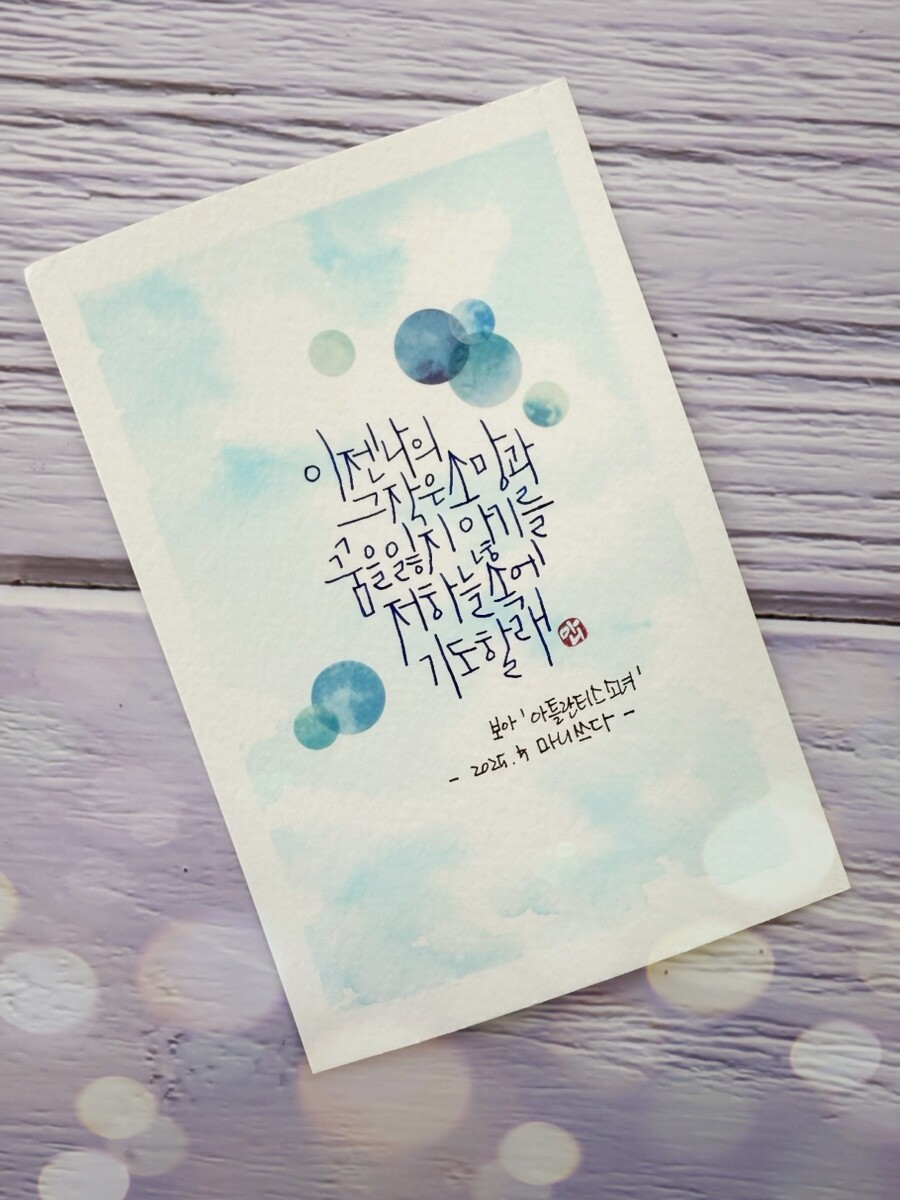 이젠 나의
그 작은 소망과
꿈을 잃지 않기를
저 하늘 속에
기도할래
보아 '아틀란티스 소녀'
- 2025. 마니쓰다 -